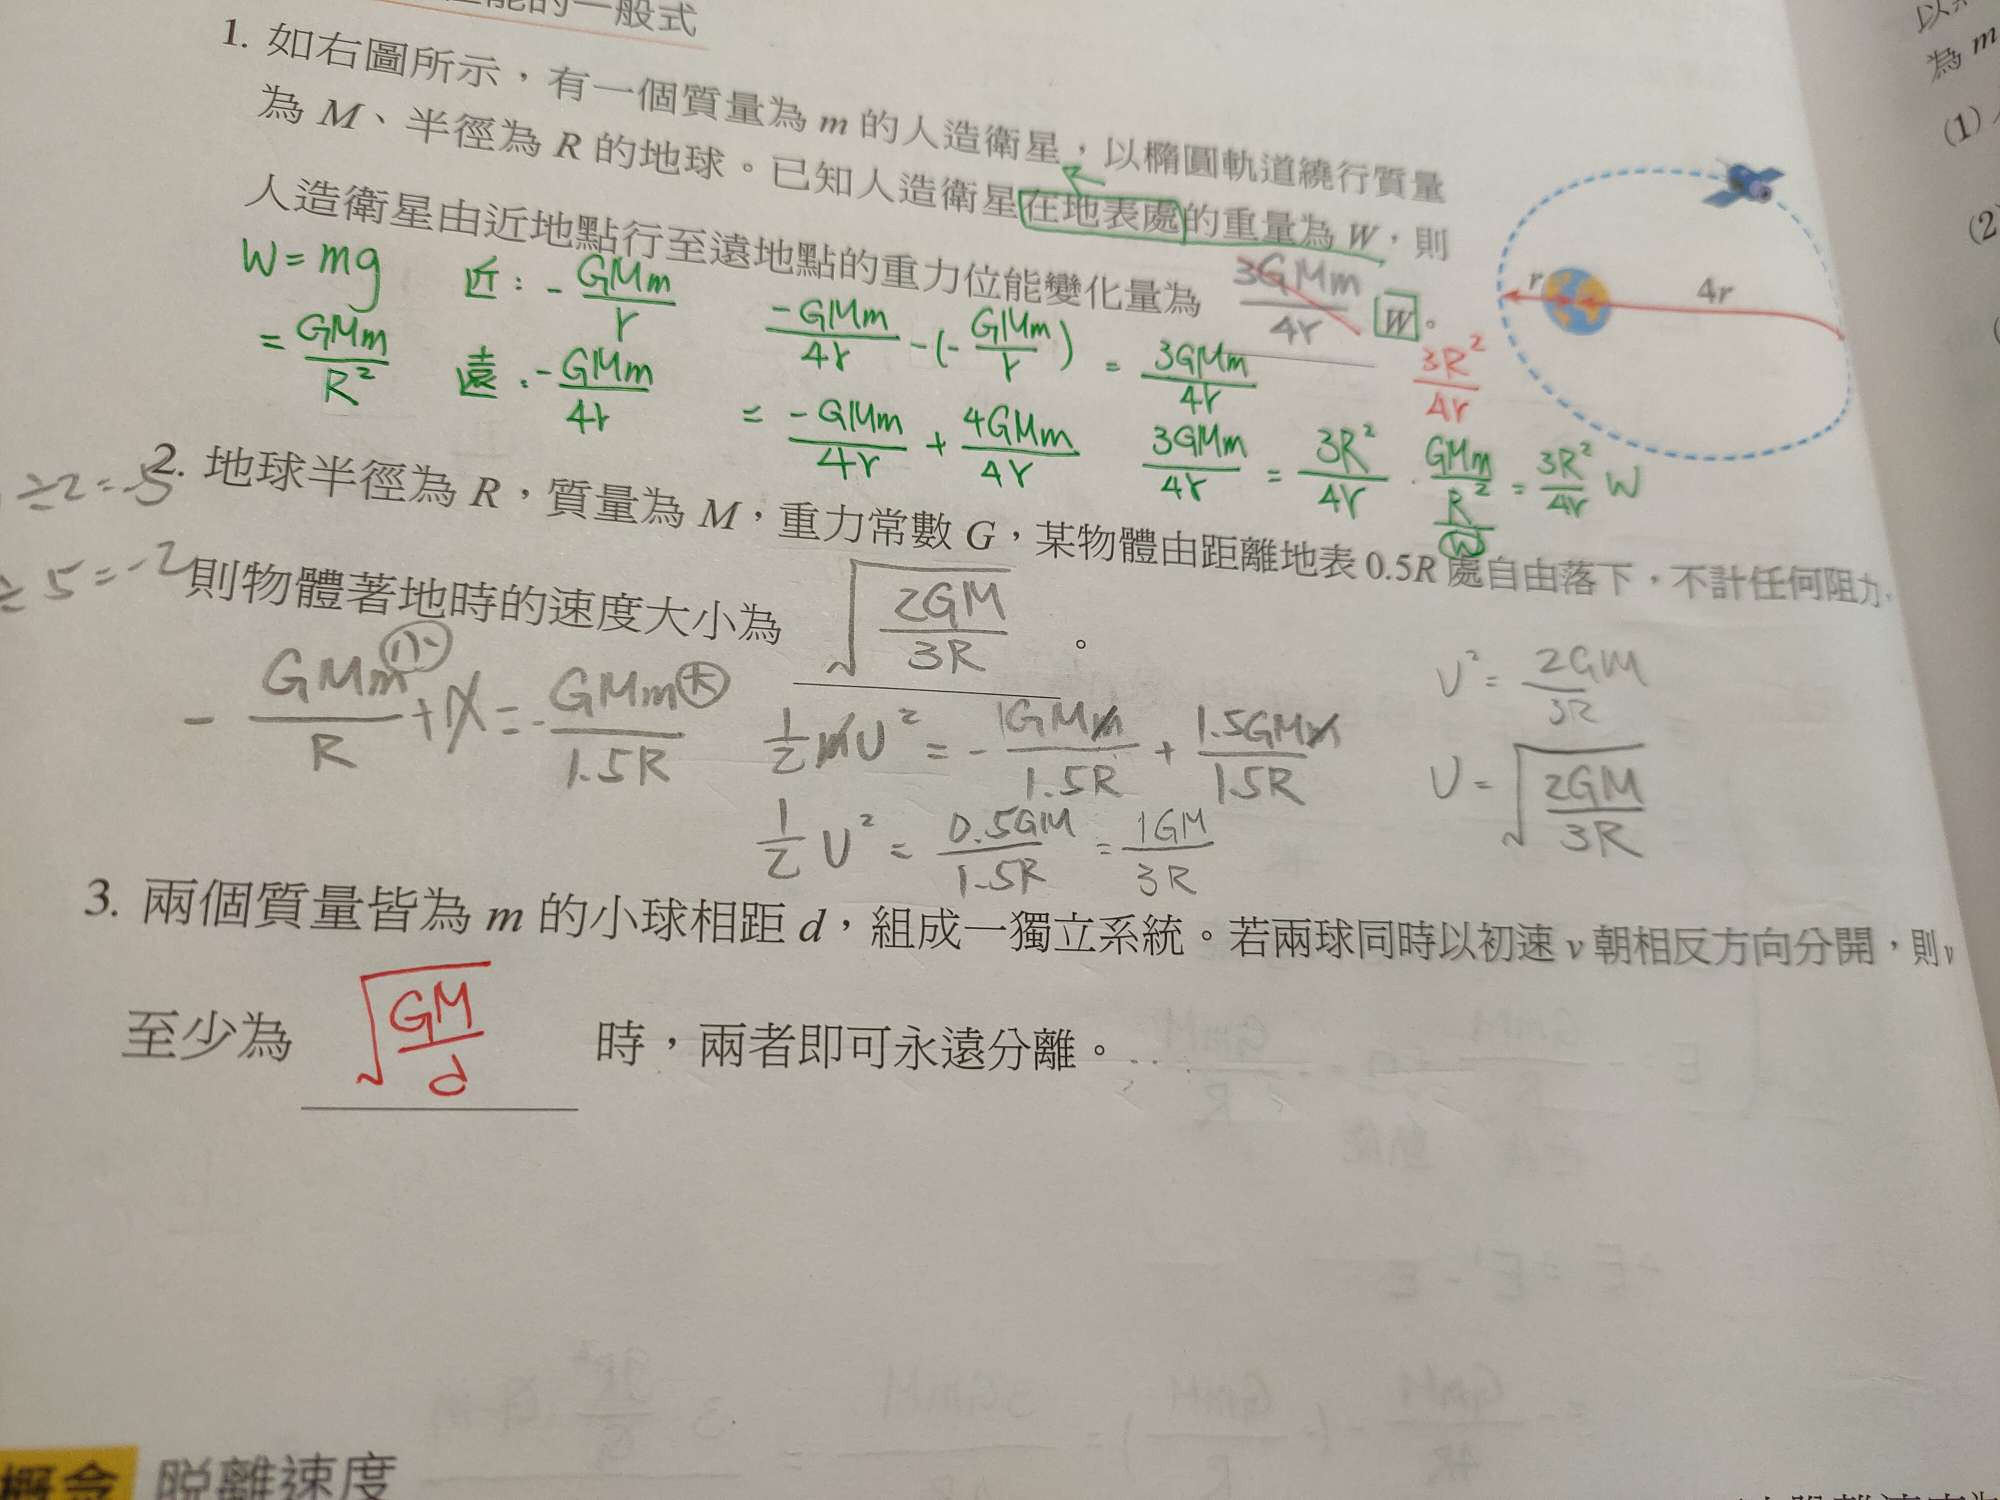 能的一般式
1. 如右圖所示，有一個質量為 m 的人造衛星，以橢圓軌道繞行質量
為 M、半徑為 R 的地球。已知人造衛星在地表處的重量為 W，則
人造衛星由近地點行至遠地點的重力位能變化量為 3GMm/4r W。
3R²/4r
r 4r
W = mg
= GMm/R²
近：- GMm/r
遠：- GMm/4r
-GMm/4r - (- GMm/r) = 3GMm/4r
= -GMm/4r + 4GMm/4r
3GMm/4r = 3R²/4r · GMm/R² = 3R²/4r W
W
÷2=-5
÷5=-2
2. 地球半徑為 R，質量為 M，重力常數 G，某物體由距離地表 0.5R 處自由落下，不計任何阻力，
則物體著地時的速度大小為 √(2GM/3R) 。
- GMm/R 小 + = - GMm/1.5R 大
½mU² = - 1GMm/1.5R + 1.5GMm/1.5R
½U² = 0.5GM/1.5R = 1GM/3R
U² = 2GM/3R
U = √(2GM/3R)
3. 兩個質量皆為 m 的小球相距 d，組成一獨立系統。若兩球同時以初速 v 朝相反方向分開，則 v
至少為 √(GM/d) 時，兩者即可永遠分離。
概念 脫離速度
為 m
(1)
(2)